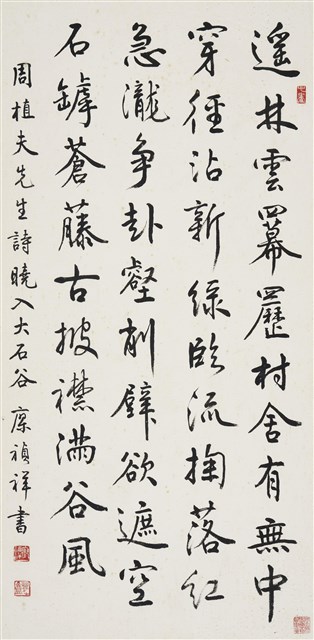 遥林雲冪䍥村舍有無中
穿徑沾新綠臨流掬落紅
急瀧争赴壑削壁欲遮空
石罅蒼藤古披襟滿谷風
周植夫先生詩曉入大石谷 廖禎祥書